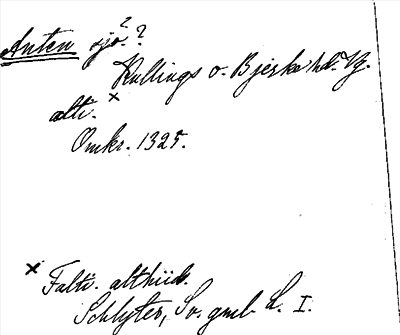 Anten sjö? ?
Kullings o. Bjerke hd. Vg.
altr. x
Omkr. 1325.
x Faltr. althiid.
Schlyter, Sv. gml. L. I.